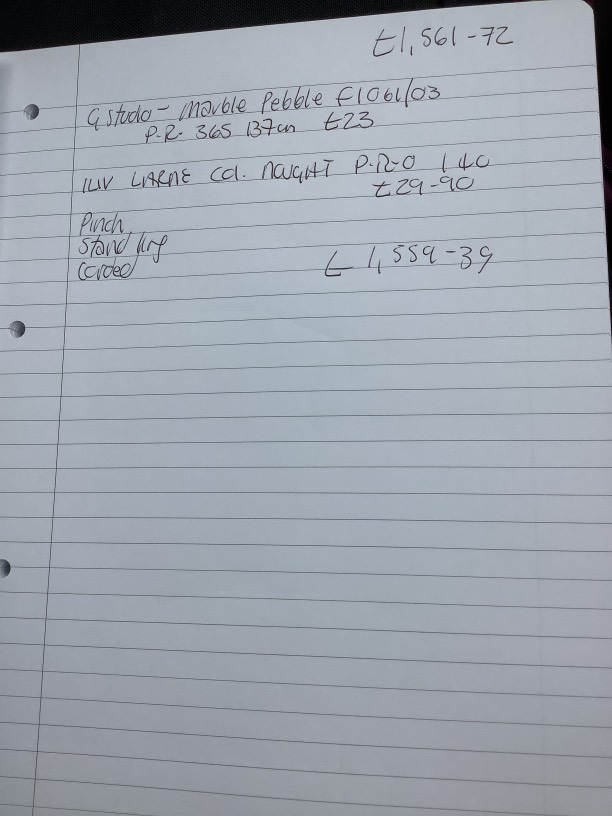 £1,561-72
G Studio - Marble Pebble F1061/03
P.R. 365 137cm £23
ILIV LARNE Col. NOUGHT P.R-0 140
£29-90
Pinch
Stand
Corded
£1,559-39